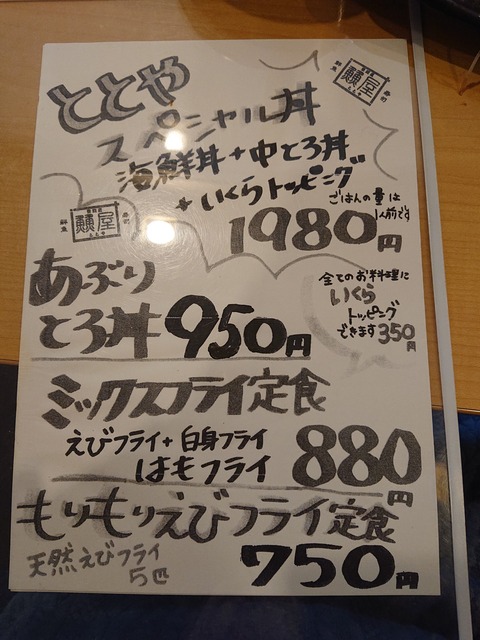 ととや
スペシャル丼
海鮮丼+中とろ丼
+いくらトッピング
ごはんの量は
1人前です
1980円
あぶり
とろ丼 950円
全てのお料理に
いくら
トッピング
できます350円
ミックスフライ定食
えびフライ+白身フライ
はもフライ
880円
もりもりえびフライ定食
天然えびフライ
5匹
750円